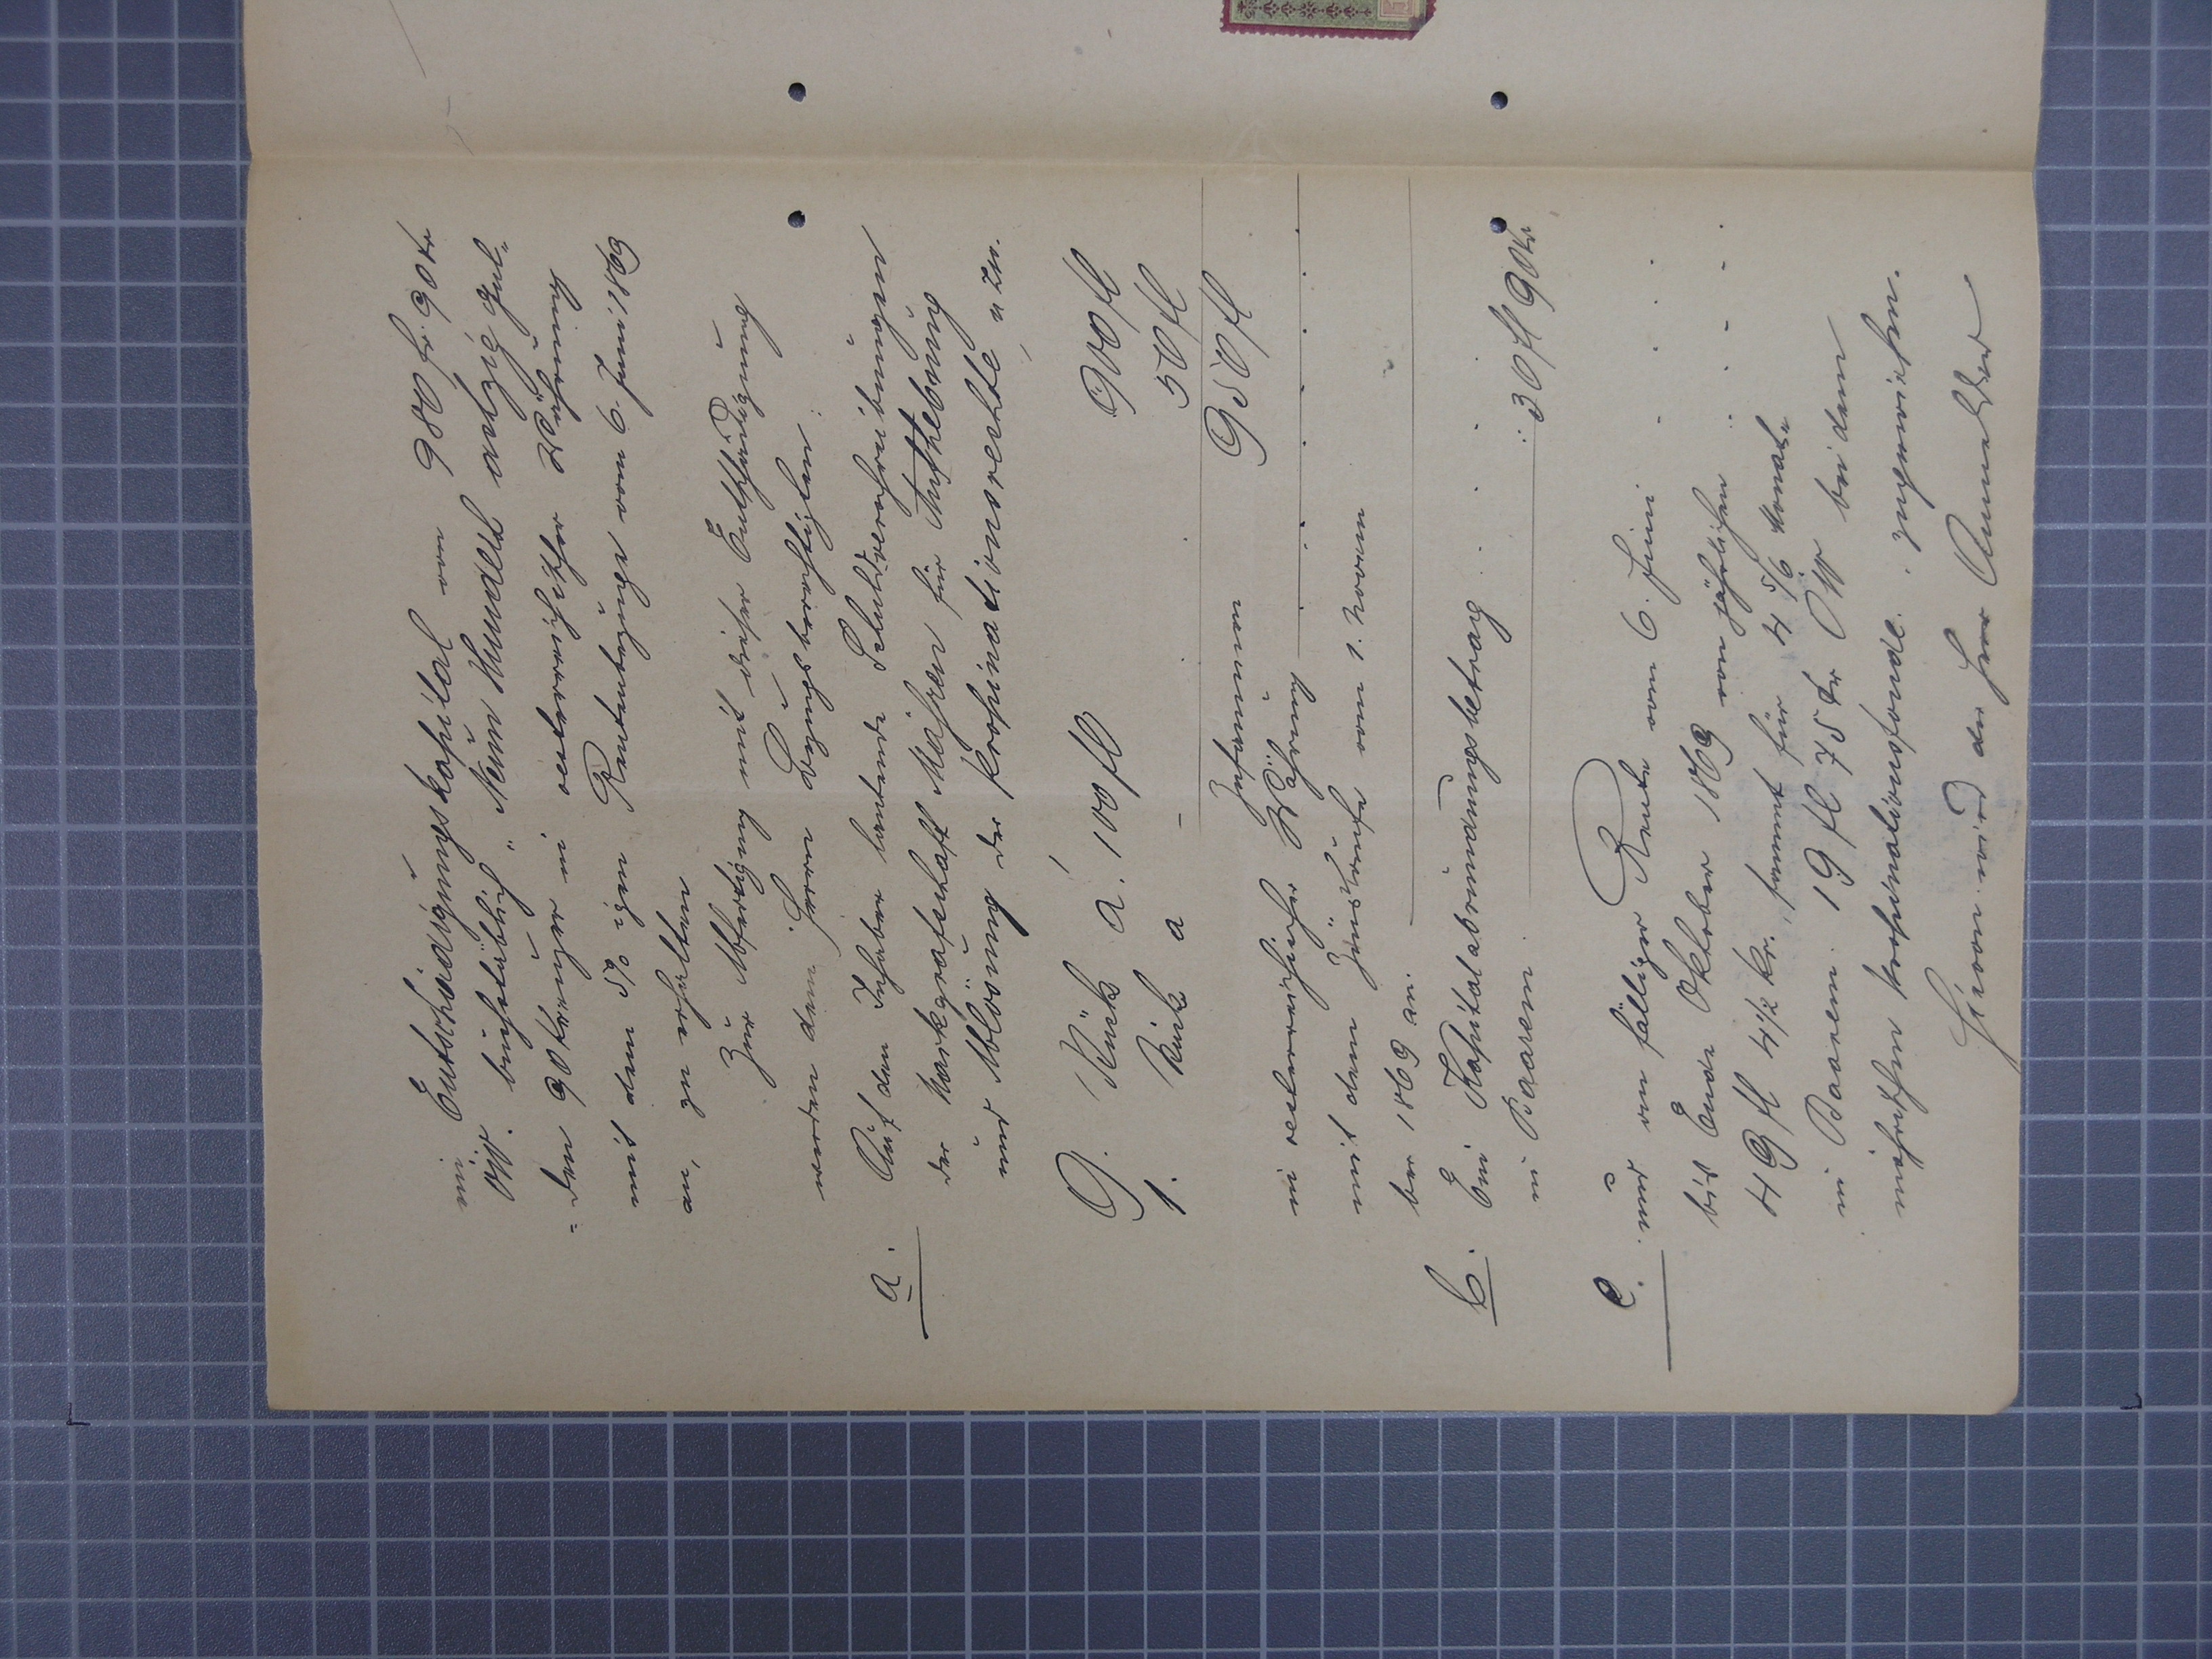 ein Entschädigungskapital von 980 fr. 90 kr
öW. buchstäblich „Neun Hundert achzig Gul„
=den 90 Kreuzer in oesterreichischer Währung
mit dem 5% igen Rentenbezuge vom 6. Juni 1869
an, zu erhalten
Zur Abfertigung mit dieser Entschädigung
werden dem Herrn Bezugsberechtigten:
a. Auf den Inhaber lautende Schuldverschreibungen
der Markgrafschaft Mähren für Aufhebung
und Ablösung der Propinationsrechte u zw.
9. Stück á. 100 fl 900 fl
1. Stück a 50 fl
Zusammen 950 fl
in oesterreichischer Währung
mit dem Zinslaufe vom 1. Novem
ber 1869 an.
b. Ein Kapitalabrundungsbetrag
in Baarem 30 fl 90 kr
c. und an fälliger Rente vom 6. Juni
bis Ende Oktober 1869 von jährlichen
49 fl 4½ kr. sammt für 4 5/6 Monate
in Baarem 19 fl. 75 kr ÖW bei dem
mährischen Propinationsfonde. angewiesen.
Hievon wird der Herr Anmelder